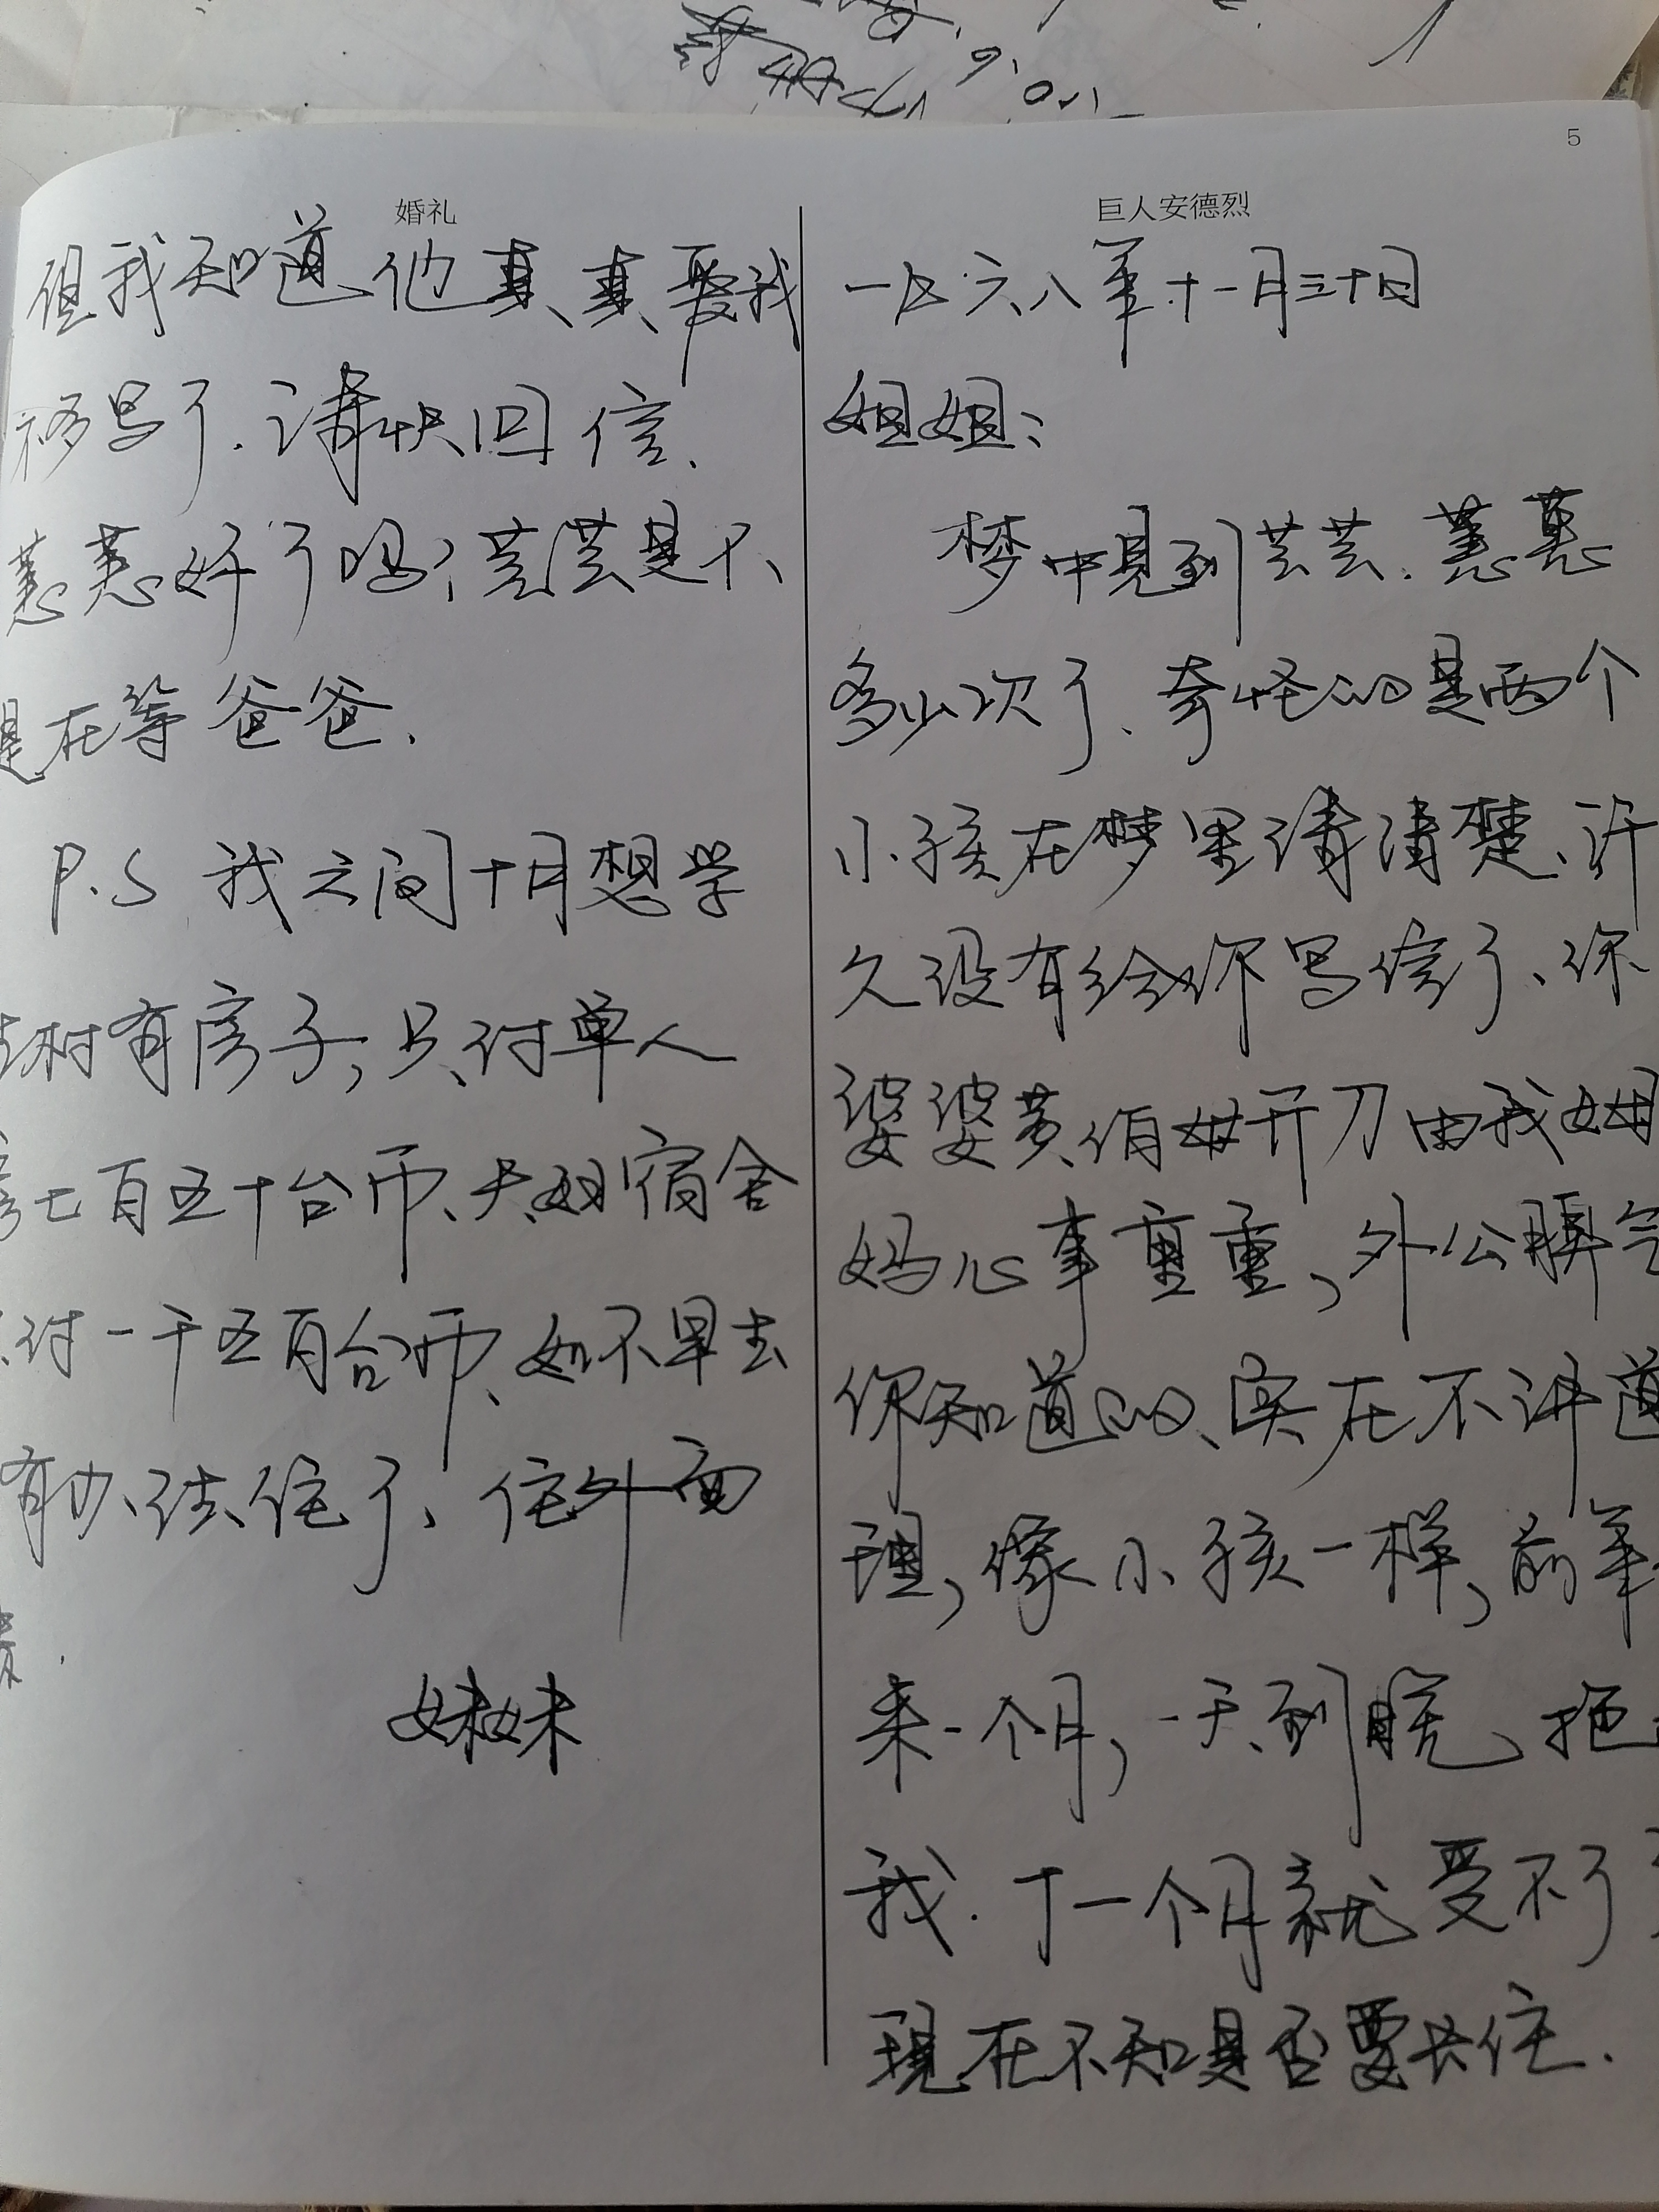 5
婚礼
但我知道他真、真、爱我
移写了.请快回信.
蕙蕙好了吗?芸芸是不
是在等爸爸.
P.S 我之间十月想学
村有房子,只付单人
房七百五十台币、夫妇宿舍
付一千五百台币、如不早去
有办法住了、住外面
贵.
妹妹
巨人安德烈
一九六八年十一月三十日
姐姐:
梦中见到芸芸.蕙蕙
多少次了、奇怪的是两个
小孩在梦里清清楚、许
久没有给你写信了、你
婆婆黄伯母开刀由我姆
妈心事重重,外公脾气
你知道的、实在不讲道
理,像小孩一样,前年
来一个月,一天到晚、拖
我.下一个月就受不了
现在不知是否要长住.